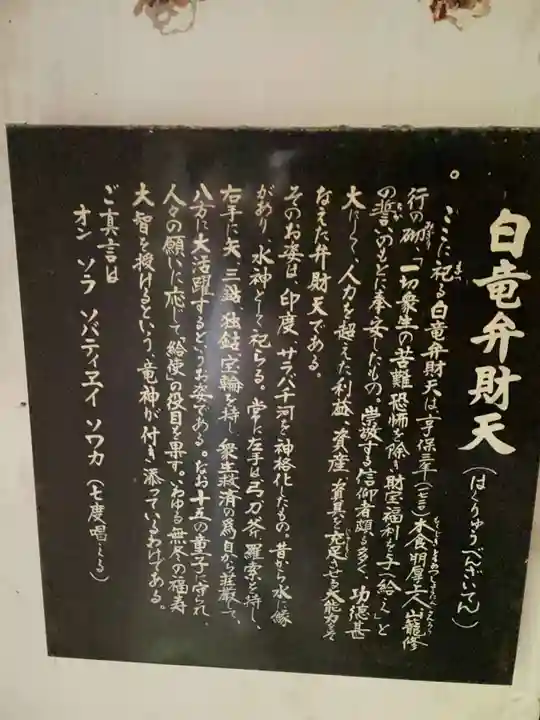 白竜弁財天（はくりゅうべんざいてん）
。ここに祀る白竜弁財天は、享保三年 木食朋厚上人 山籠修
行の砌「一切衆生の苦難恐怖を除き財宝福利を与へ給え」と
の誓いのもとに奉安したもの。崇敬する信仰者頗る多く、功徳甚
大にして、人力を超えた利益、資産、資具を充足させる大能力をそ
なえた弁財天である。
そのお姿は、印度、サラバチ河を神格化したもの。昔から水に縁
があり、水神として祀らる。常に左手は弓刀斧、羅索を持し、
右手に矢、三鈷、独鈷、宝輪を持し、衆生救済の為自から荘厳して、
八方に大活躍するというお姿である。なお十五の童子に守られ、
人々の願いに応じて「給使」の役目を果す、いわゆる無尽の福寿
大智を授けるという、竜神が付き添っているわけである。
ご真言は
オン ソラ ソバティエイ ソワカ（七度唱える）